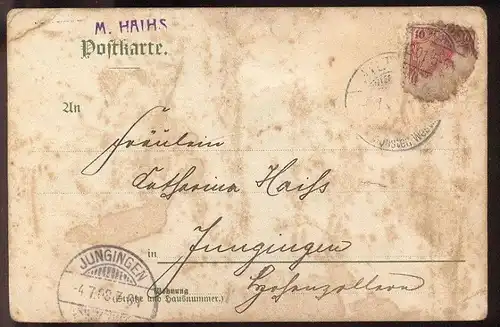 M. HAIHS
Postkarte.
10
An
Fräulein
Catharina Haihs
in Jungingen
Hohenzollern
Wohnung
(Straße und Hausnummer.)
JUNGINGEN
-4.7.